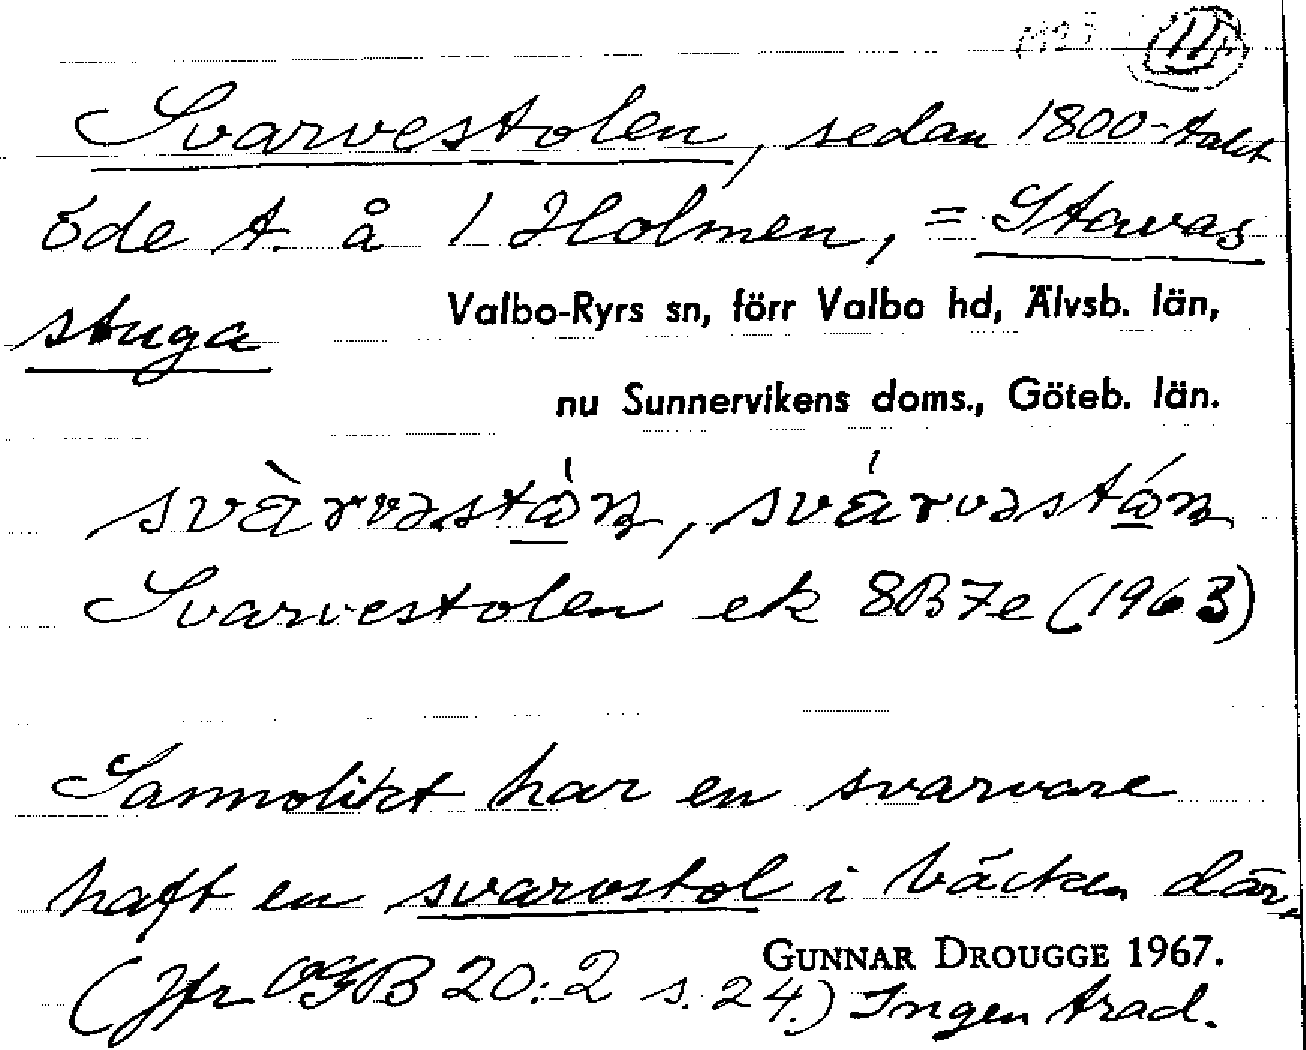 11
Svarvestolen, sedan 1800-talet
öde t. å 1 Holmen, = Stavas
stuga
Valbo-Ryrs sn, förr Valbo hd, Älvsb. län,
nu Sunnervikens doms., Göteb. län.
svàrvəstὼn, svárvəstώn
Svarvestolen ek 8B7e (1963)
Sannolikt har en svarvare
haft en svarvstol i bäcken där.
GUNNAR DROUGGE 1967.
(Jfr OGB 20:2 s. 24.) Ingen trad.